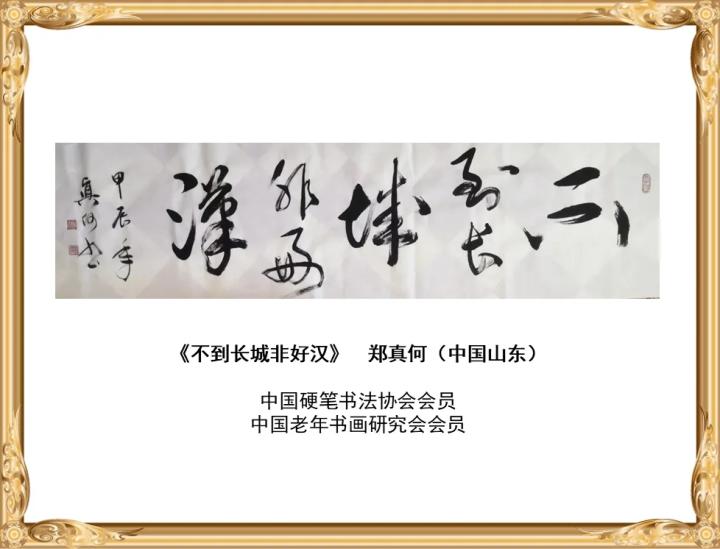 不
到长
城
非好
漢
甲辰年
真何书
《不到长城非好汉》 郑真何（中国山东）
中国硬笔书法协会会员
中国老年书画研究会会员